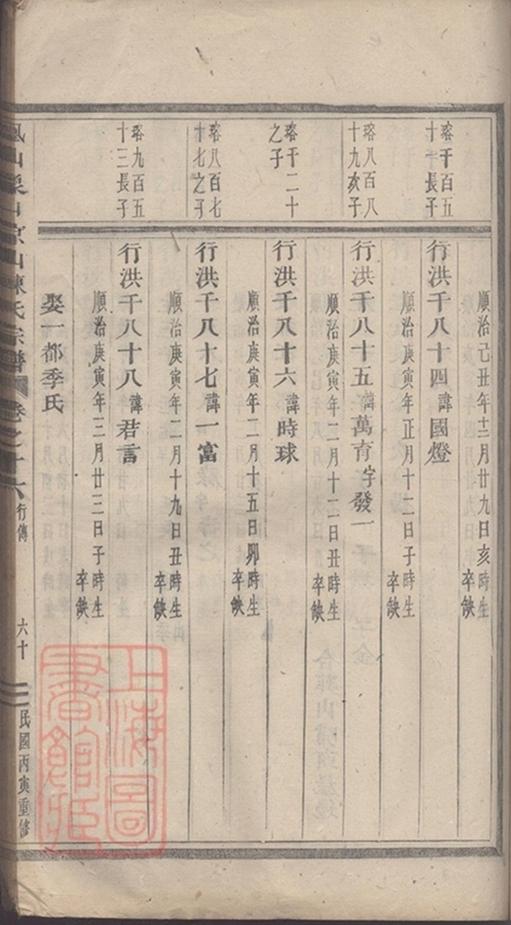 順治己丑年十二月廿九日亥時生
卒缺
瑢千百五
十一長子
行洪千八十四諱國燈
順治庚寅年正月十二日子時生
卒缺
瑢八百八
十九次子
行洪千八十五諱萬育字發一
順治庚寅年二月十二日丑時生
卒缺
瑢千二十
之子
行洪千八十六諱時球
順治庚寅年二月十五日卯時生
卒缺
瑢八百七
十七之子
行洪千八十七諱一富
順治庚寅年二月十九日丑時生
卒缺
瑢九百五
十三長子
行洪千八十八諱君言
順治庚寅年三月廿三日子時生
卒缺
娶一都季氏
山陳氏宗譜
卷之十六
行傳
六十
民國丙寅重修
上海圖
書館藏